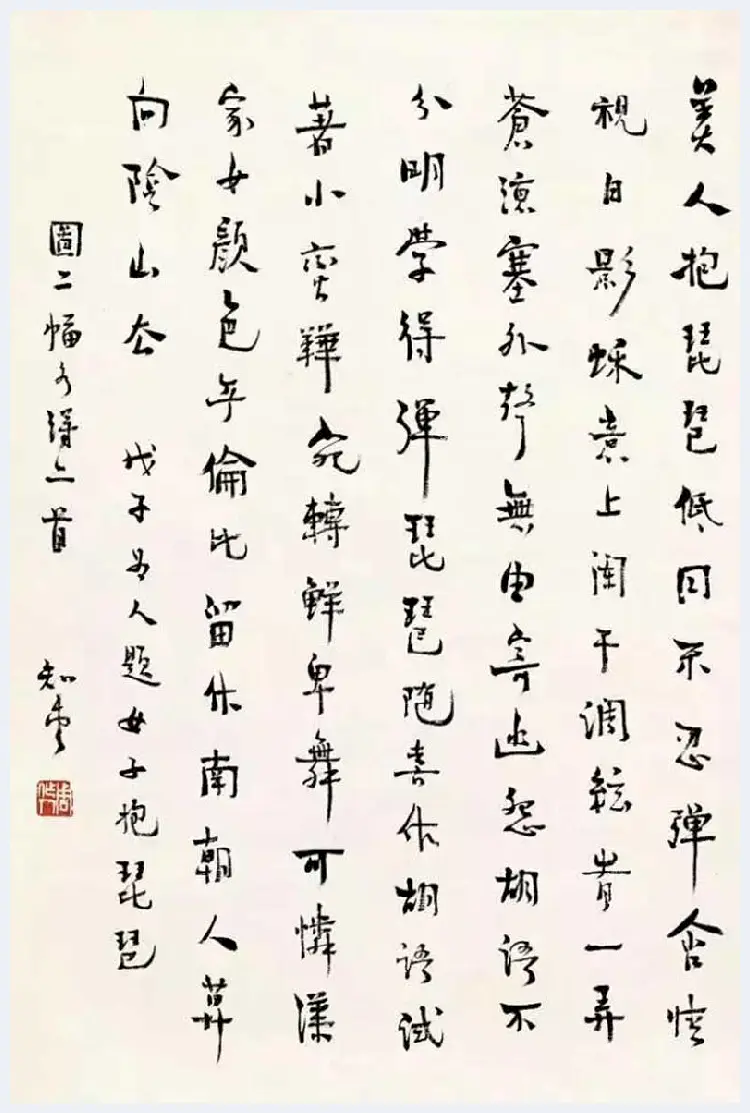 美人抱琵琶低回不忍彈含情
視日影上闌干調絃一弄
蒼涼塞外聲無由寄幽怨胡語不
分明學得彈琵琶琶隨喜作胡語試
著小蠻鞾宛轉鮮卑舞可憐漢
家女顏色倫比留作南朝人莫
向陰山去 戊子為人題女子抱琵琶
圖二幅首 知堂